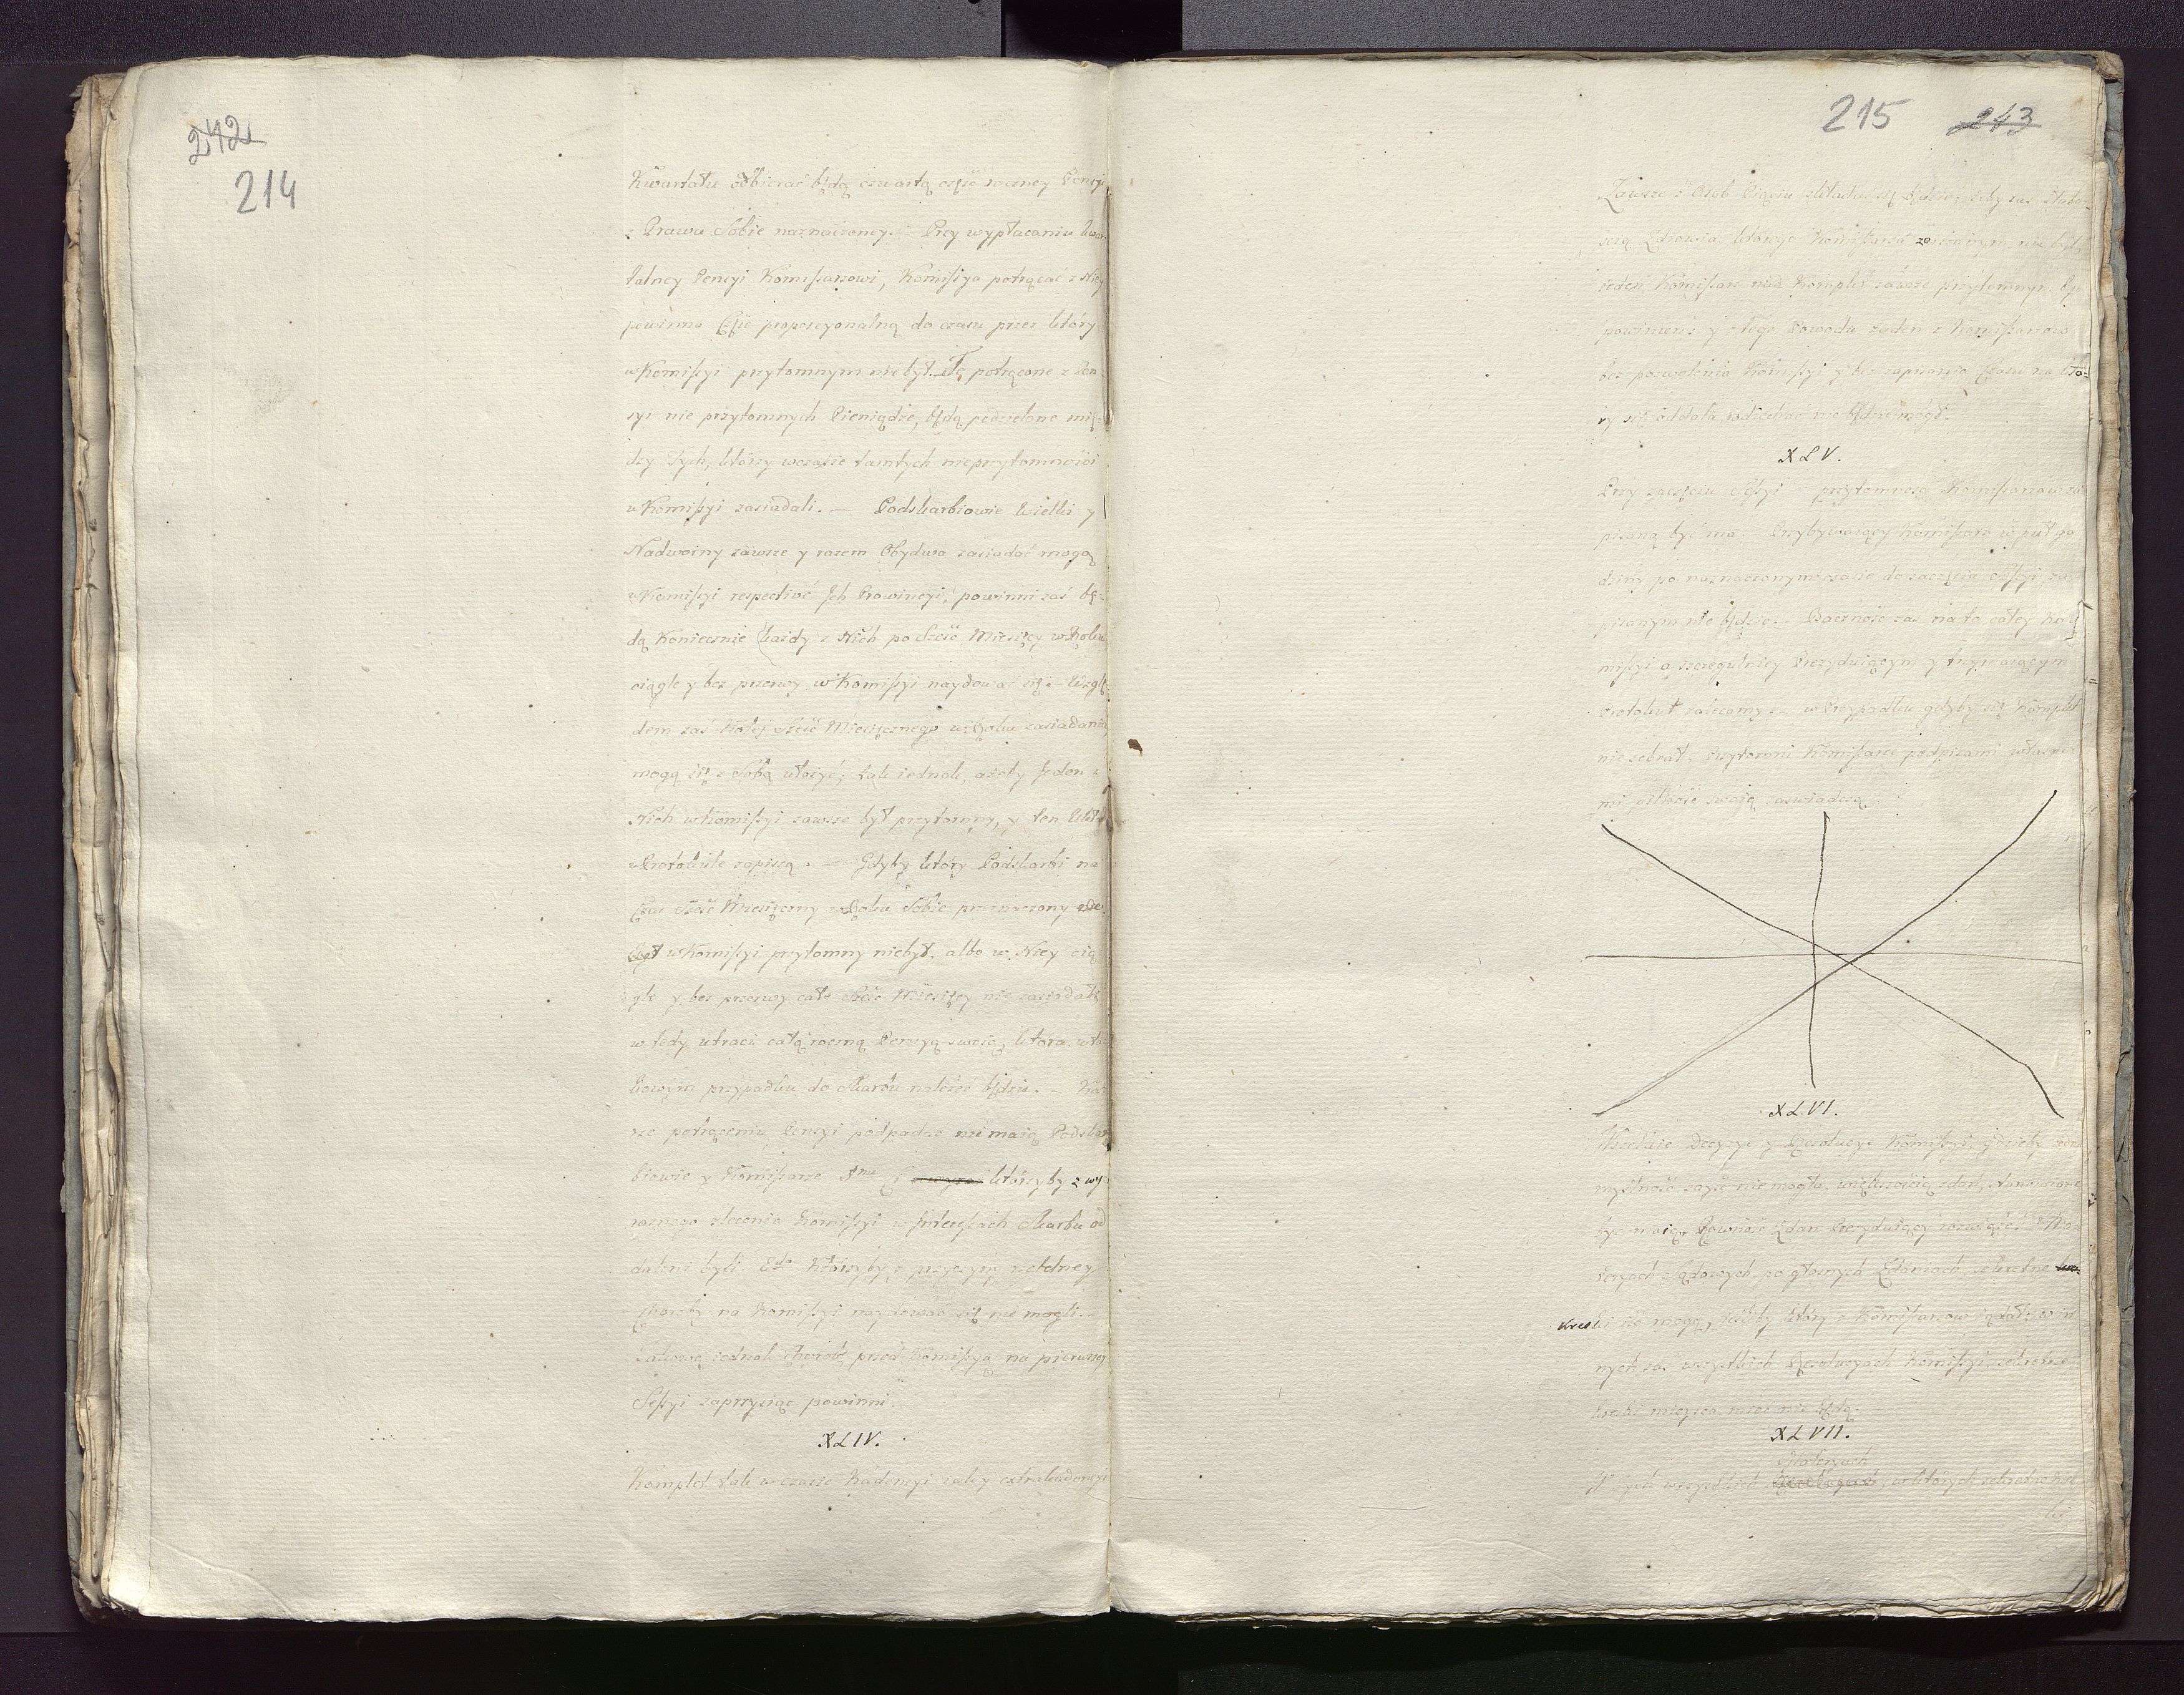 242
214
Kwartału odbierać będą czwartą część roczney Pensyi
z Prawa Sobie naznaczoney. Przy wypłacaniu kwar-
talney Pensyi Kommissarzowi, Kommissya potrącać z Niey
powinna Część proporcyonalną do czasu przez który
w Kommissyi przytomnym nie był. Te potrącone z Pen-
syi nie przytomnych Pieniądze, będą podzielone mię-
dzy Tych, którzy w czasie tamtych nieprzytomności
w Kommissyi zasiadali. — Podskarbiowie Wielki y
Nadworny zawsze y razem Obydwa zasiadać mogą
w Kommissyi respective Ich Prowincyi, powinni zaś bę-
dą koniecznie każdy z Nich po Sześć Miesięcy w Roku
ciągle y bez przerwy w Kommissyi naydować się. - Wzglę-
dem zaś Sześć Miesięcznego w Roku zasiadania
mogą się z Sobą ułożyć; tak iednak, ażeby Jeden z
Nich w Kommissyi zawsze był przytomny, y ten układ
w Protokule zapiszą. — Gdyby który Podskarbi na
Czas Sześć Miesięczny w Roku Sobie przeznaczony
w Kommissyi przytomny niebył, albo w Niey cią
gle y bez przerwy całe Sześć Miesięcy nie zasiadał;
w tedy utraci całą roczną Pensyą swoią, która w ta-
kowym przypadku do Skarbu należeć będzie. — Ka-
rze potrącenia Pensyi podpadać nie maią Podskar-
biowie y Kommissarze 1mo którzyby z wy-
raznego zlecenia Kommissyi w Interessach Skarbu od
daleni byli. 2do Którzyby z przyczyny rzetelney
Choroby na Kommissyi naydować się nie mogli. -
Takową iednak chorobę przed Kommissyą na pierwszey
Sessyi zaprzysiąc powinni.
XLIV.
Komplet tak w czasie Kadencyi iak y extrakadencyi
215 243
Zawsze z Osob Pięciu składać się będzie, żeby zaś słabo-
ścią Zdrowia którego Kommissarza zerwanym nie był,
ieden Kommissarz nad Komplet zawsze przytomnym być
powinien: y z tego Powodu żaden z Kommissarzow
bez pozwolenia Kommissyi y bez zapisania Czasu na któ-
ry się oddala, odiechać nie będzie mógł.
XLV.
Przy zaczęciu Sessyi przytomność Kommissarzow za-
pisaną być ma. - Przybywaiący Kommissarz w puł go
dziny po naznaczonym czasie do zaczęcia Sessyi, za-
pisanym nie będzie. - Baczność zaś na to całey Kom
missyi a szczegulniey Prezyduiącym y trzymaiącym
Protokuł zalecamy. - w Przypadku gdyby się Komplet
nie zebrał, Przytomni Kommissarze podpisami własne-
mi pilność swoią zaswiadczą.
XLVI.
Wszelkie Decyzye y Rezolucye Kommissyi, gdzieby iedno
myślność zayść nie mogła, większością zdań, stanowione
być maią. Równość Zdań Prezyduiący rozwiąże. W Ma-
teryach Sądowych po głosnych Zdaniach sekretne
kreski iść mogą, ieśliby który z Kommissarzow żądał; w in
nych zaś wszystkich Rezolucyach Kommissyi sekretne
kreski mieysca mieć nie będą.
XLVII.
Materyach
W tych wszystkich w których sekretne kres
ki